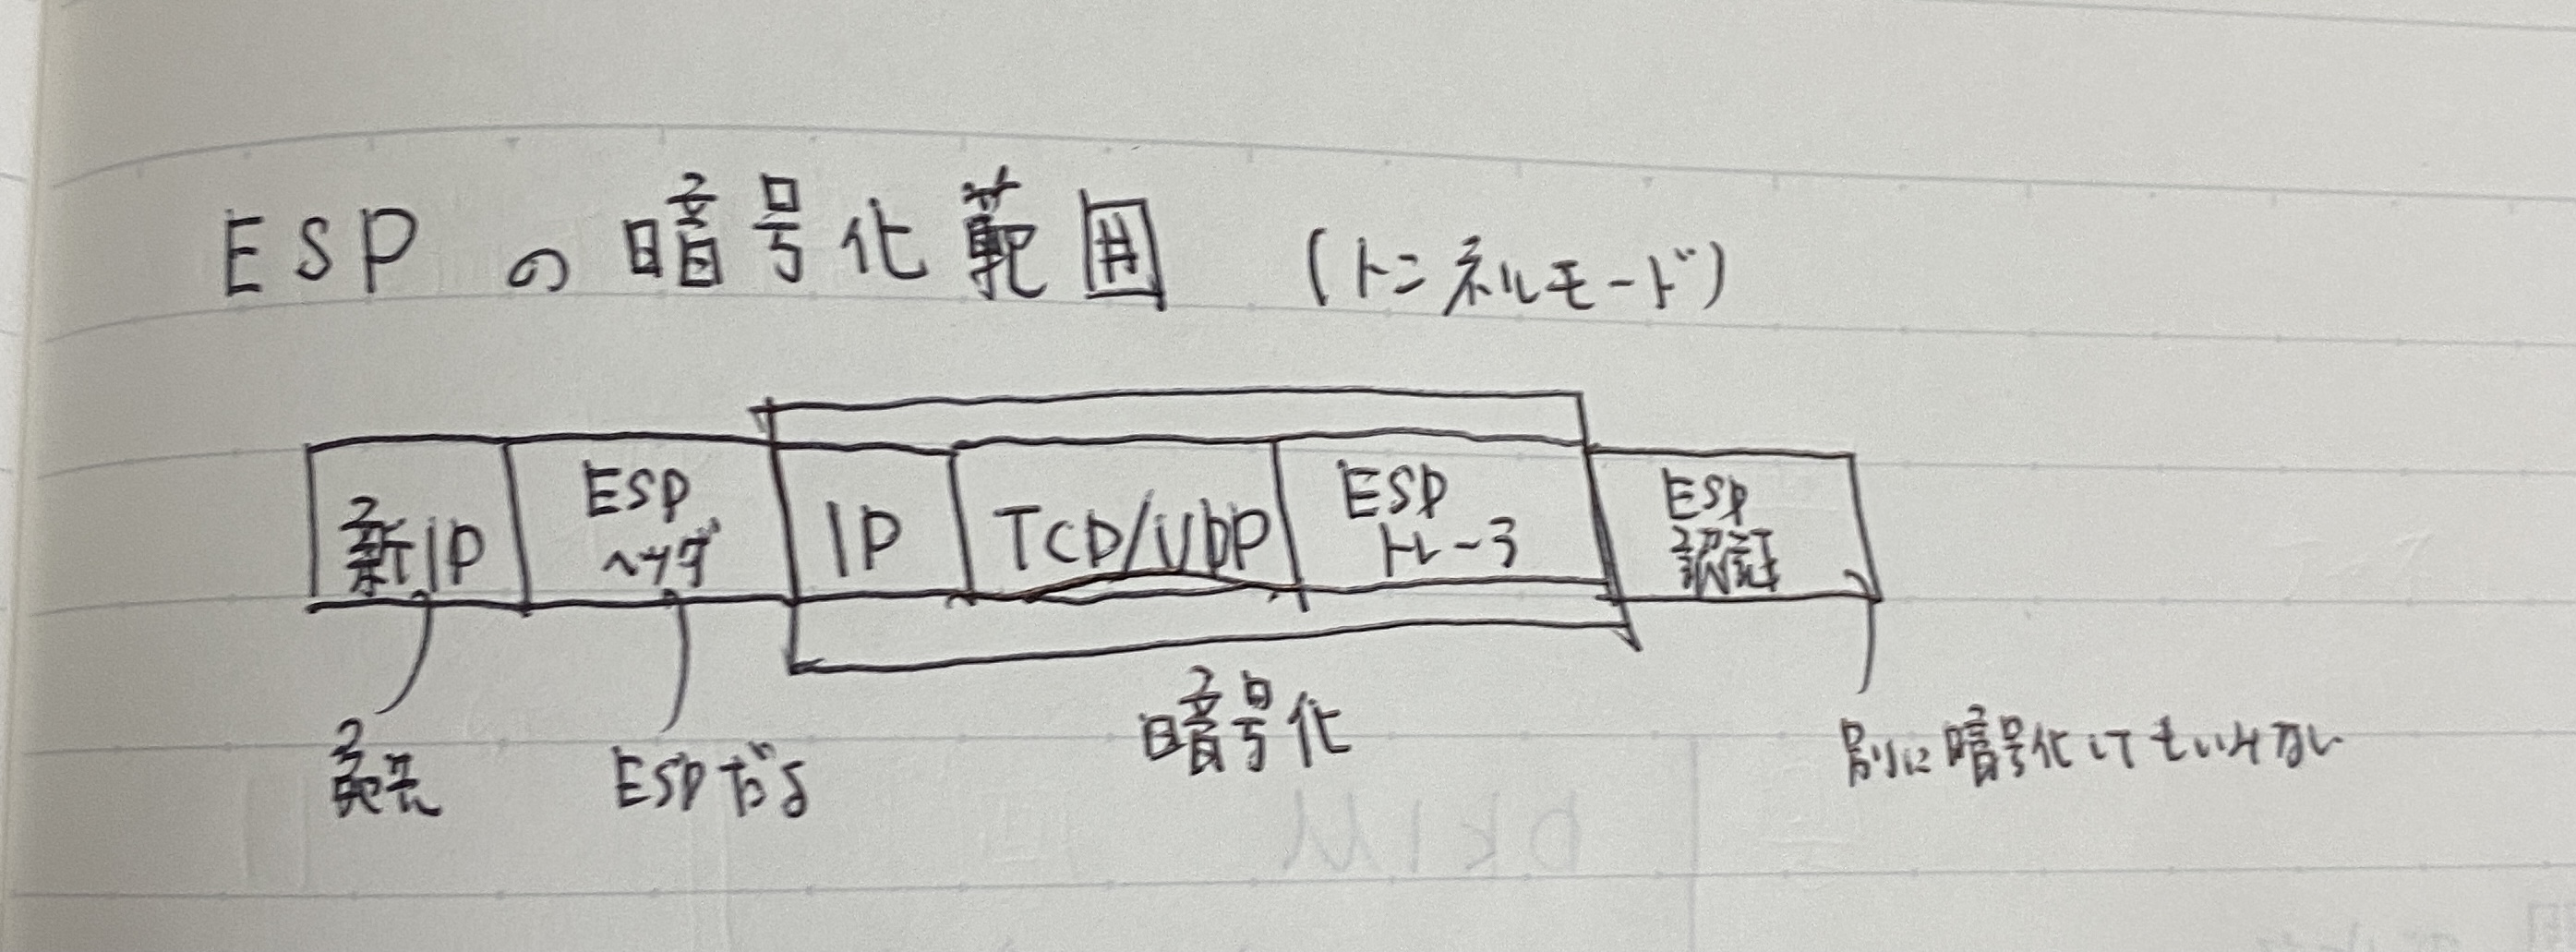 ESPの暗号化範囲 (トンネルモード)
新IP
ESP
ヘッダ
IP
TCP/UDP
ESP
トレーラ
ESP
認証
宛先
ESPだよ
暗号化
別に暗号化してもいみない
DKIM